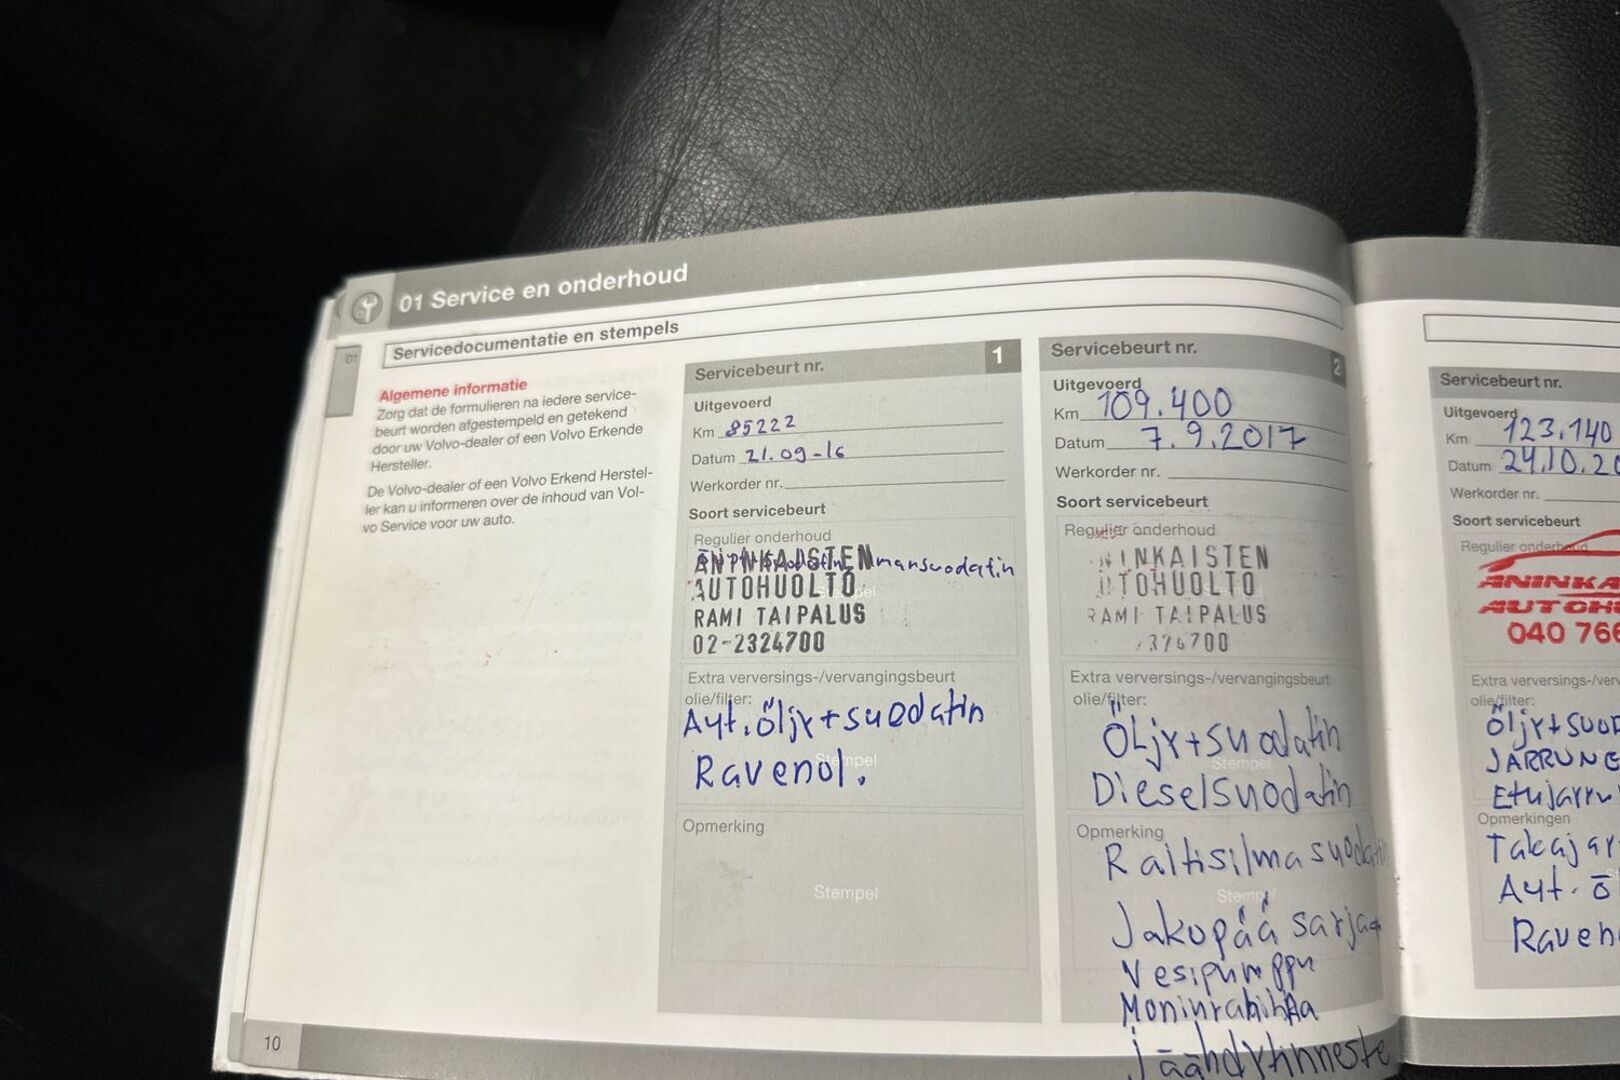 01 Service en onderhoud
01
Servicedocumentatie en stempels
Algemene informatie
Zorg dat de formulieren na iedere service-
beurt worden afgestempeld en getekend
door uw Volvo-dealer of een Volvo Erkende
Hersteller.
De Volvo-dealer of een Volvo Erkend Herstel-
ler kan u informeren over de inhoud van Vol-
vo Service voor uw auto.
10
Servicebeurt nr. 1
Uitgevoerd
Km 85222
Datum 21.09-16
Werkorder nr.
Soort servicebeurt
Regulier onderhoud
ANINKAISTEN
AUTOHUOLTO
RAMI TAIPALUS
02-2324700
Extra verversings-/vervangingsbeurt
olie/filter:
Aut.öljy+suodatin
Ravenol.
Stempel
Opmerking
Stempel
Servicebeurt nr. 2
Uitgevoerd
Km 109.400
Datum 7.9.2017
Werkorder nr.
Soort servicebeurt
Regulier onderhoud
NINKAISTEN
UTOHUOLTO
RAMI TAIPALUS
Extra verversings-/vervangingsbeurt
olie/filter:
Öljy+suodatin
Stempel
Dieselsuodatin
Opmerking
Raitisilmasuodatin
Stempel
Jakopää sarja+
Vesipumppu
Moniurahihna
Jäähdytinneste
Servicebeurt nr.
Uitgevoerd
Km 123.140
Datum 24.10.20
Werkorder nr.
Soort servicebeurt
Regulier onderhoud
ANINKA
AUTOHU
040 766
Extra verversings-/ver
olie/filter:
Öljy+suo
JARRUNE
Etujarru
Opmerkingen
Takajar
Aut. ö
Raven